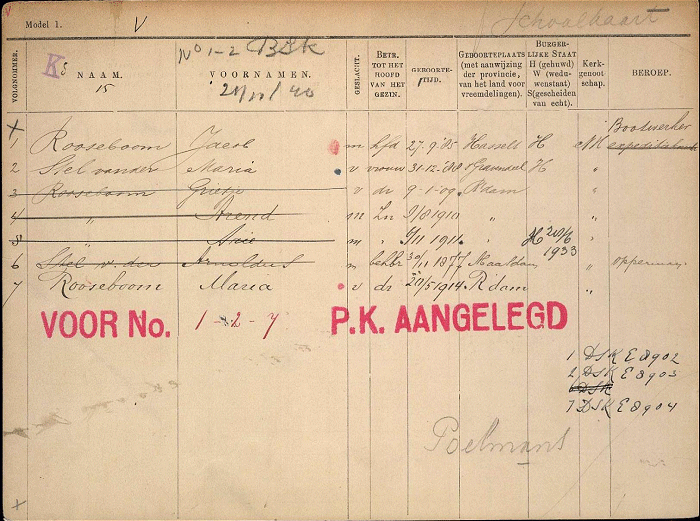 Model 1. V Schoolkaart
VOLGNOMMER. NAAM. VOORNAMEN. GESLACHT. BETR. TOT HET HOOFD VAN HET GEZIN. GEBOORTE-TIJD. GEBOORTEPLAATS (met aanwijzing der provincie, van het land voor vreemdelingen). BURGER-LIJKE STAAT H (gehuwd) W (weduwenstaat) S(gescheiden van echt). Kerk-genoot schap. BEROEP.
K
15
No 1-2 BSK
Bootwerker
1 Rooseboom Jacob m hfd 27.9.'85 Hasselt H NH
2 Stel van der Maria v vrouw 31.12.'88 's Gravendeel H "
3 Rooseboom Grietje v dr 9-1-09 R'dam "
4 " Arend m Zn 9/8 1910 "
" Arie m " 6/11 1911 H 1933 "
6 Stel v. der Arnoldus m 1877 Maasdam " opperman
7 Rooseboom Maria v dr 20/5 1914 R'dam "
VOOR No. 1-2-7 P.K. AANGELEGD
1 DSK E8902
2 DSK E8903
DSK
7 DSK E8904
Poelmans